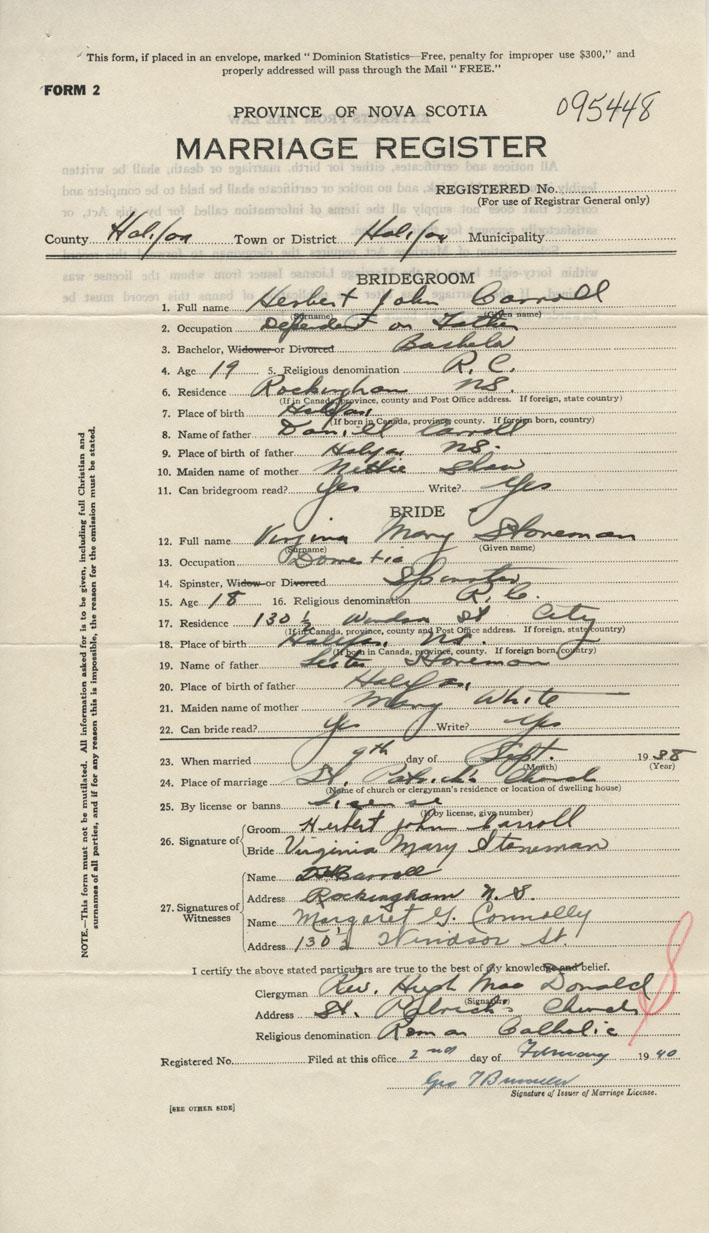 This form, if placed in an envelope, marked "Dominion Statistics—Free, penalty for improper use $300," and
properly addressed will pass through the Mail "FREE."
FORM 2
PROVINCE OF NOVA SCOTIA
095448
MARRIAGE REGISTER
REGISTERED No.
(For use of Registrar General only)
County Halifax Town or District Halifax Municipality
BRIDEGROOM
1. Full name Herbert John Carroll
(Surname) (Given name)
2. Occupation Dependent on Father
3. Bachelor, Widower or Divorced Bachelor
4. Age 19 5. Religious denomination R.C.
6. Residence Rockingham N.S.
(If in Canada, province, county and Post Office address. If foreign, state country)
7. Place of birth Halifax,
(If born in Canada, province, county. If foreign born, country)
8. Name of father Daniel Carroll
9. Place of birth of father Halifax N.S.
10. Maiden name of mother Nettie Shaw
11. Can bridegroom read? Yes Write? Yes
BRIDE
12. Full name Virginia Mary Stoneman
(Surname) (Given name)
13. Occupation Domestic
14. Spinster, Widow or Divorced Spinster
15. Age 18 16. Religious denomination R.C.
17. Residence 130½ Windsor St City
(If in Canada, province, county and Post Office address. If foreign, state country)
18. Place of birth Halifax, N.S.
(If born in Canada, province, county. If foreign born, country)
19. Name of father Stoneman
20. Place of birth of father Halifax,
21. Maiden name of mother Mary White
22. Can bride read? Yes Write? Yes
23. When married 9th day of Sept. 1938
(Month) (Year)
24. Place of marriage St. Patrick's Church
(Name of church or clergyman's residence or location of dwelling house)
25. By license or banns License
(If by license, give number)
26. Signature of Groom Herbert John Carroll
Bride Virginia Mary Stoneman
27. Signatures of Witnesses
Name Carroll
Address Rockingham N.S.
Name Margaret G. Connolly
Address 130½ Windsor St.
I certify the above stated particulars are true to the best of my knowledge and belief.
Clergyman Rev. Hugh MacDonald
(Signature)
Address St. Patrick's Church
Religious denomination Roman Catholic
Registered No. Filed at this office 2nd day of February 1940
Geo
Signature of Issuer of Marriage License.
[SEE OTHER SIDE]
NOTE.—This form must not be mutilated. All information asked for is to be given, including full Christian and
surnames of all parties, and if for any reason this is impossible, the reason for the omission must be stated.